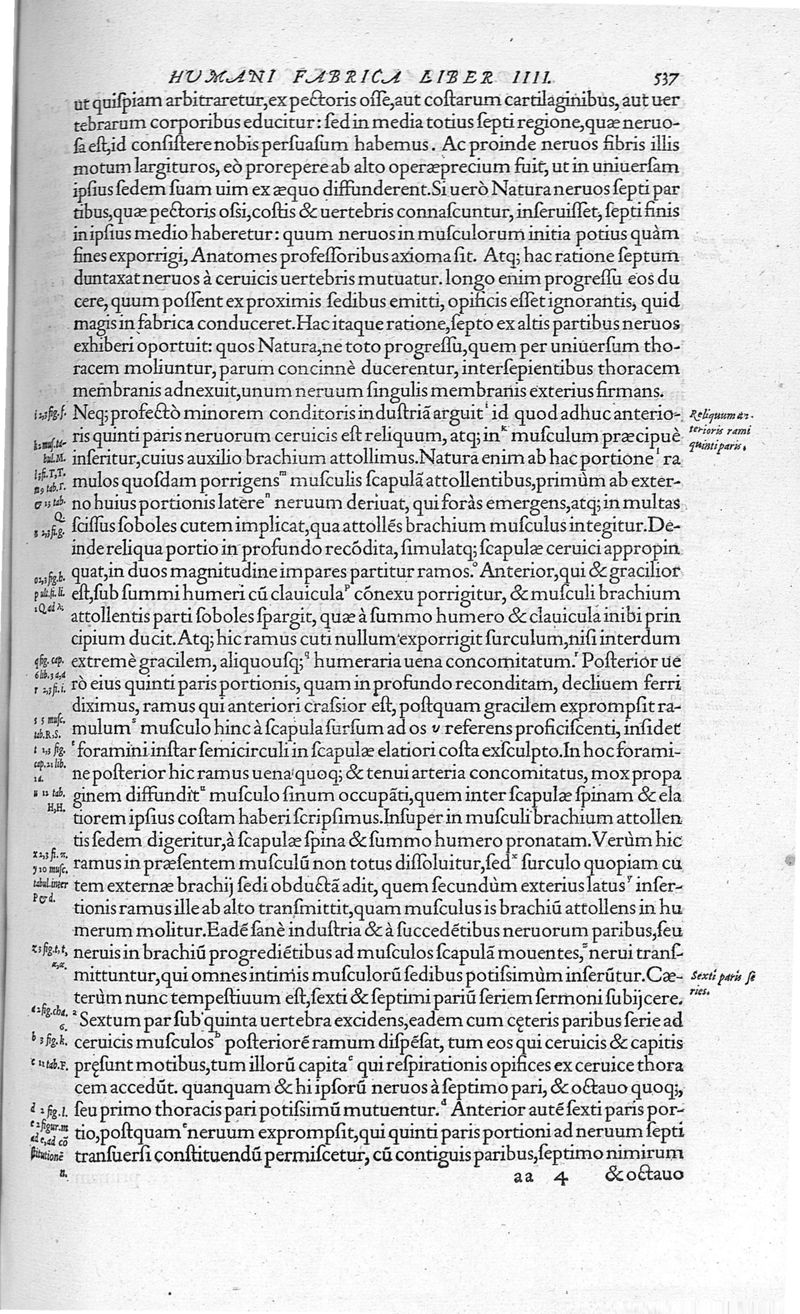 HVMANI FABRICA LIBER IIII. 537
ut quiſpiam arbitraretur, ex pectoris oſſe, aut coſtarum cartilaginibus, aut uer
tebrarum corporibus educitur: ſed in media totius ſepti regione, quæ neruo-
ſa eſt, id conſiſtere nobis perſuaſum habemus. Ac proinde neruos fibris illis
motum largituros, eò prorepere ab alto operæprecium fuit, ut in uniuerſam
ipſius ſedem ſuam uim ex æquo diffunderent. Si uerò Natura neruos ſepti par
tibus, quæ pectoris oſsi, coſtis & uertebris connaſcuntur, inſeruiſſet, ſepti finis
in ipſius medio haberetur: quum neruos in muſculorum initia potius quàm
fines exporrigi, Anatomes profeſſoribus axioma ſit. Atq; hac ratione ſeptum
duntaxat neruos à ceruicis uertebris mutuatur. longo enim progreſſu eos du
cere, quum poſſent ex proximis ſedibus emitti, opificis eſſet ignorantis, quid
magis in fabrica conduceret. Hac itaque ratione, ſepto ex altis partibus neruos
exhiberi oportuit: quos Natura, ne toto progreſſu, quem per uniuerſum tho-
racem moliuntur, parum concinnè ducerentur, interſepientibus thoracem
membranis adnexuit, unum neruum ſingulis membranis exterius firmans.
Neq; profectò minorem conditoris induſtriã arguit i id quod adhuc anterio-
ris quinti paris neruorum ceruicis eſt reliquum, atq; in k muſculum præcipuè
inſeritur, cuius auxilio brachium attollimus. Natura enim ab hac portione l ra
mulos quoſdam porrigens m muſculis ſcapulã attollentibus, primùm ab exter-
no huius portionis latere n neruum deriuat, qui foràs emergens, atq; in multas
ſciſſus ſoboles cutem implicat, qua attollẽs brachium muſculus integitur. De-
inde reliqua portio in profundo recõdita, ſimulatq; ſcapulæ ceruici appropin
quat, in duos magnitudine impares partitur ramos. o Anterior, qui & gracilior
eſt, ſub ſummi humeri cũ clauicula p cõnexu porrigitur, & muſculi brachium
attollentis parti ſoboles ſpargit, quæ à ſummo humero & clauicula inibi prin
cipium ducit. Atq; hic ramus cuti nullum exporrigit ſurculum, niſi interdum
extremè gracilem, aliquouſq; q humeraria uena concomitatum. r Poſterior ue
rò eius quinti paris portionis, quam in profundo reconditam, decliuem ferri
diximus, ramus qui anteriori craſsior eſt, poſtquam gracilem exprompſit ra-
mulum s muſculo hinc à ſcapula ſurſum ad os υ referens proficiſcenti, inſidet
t foramini inſtar ſemicirculi in ſcapulæ elatiori coſta exſculpto. In hoc forami-
ne poſterior hic ramus uena quoq; & tenui arteria concomitatus, mox propa
ginem diffundit u muſculo ſinum occupãti, quem inter ſcapulæ ſpinam & ela
tiorem ipſius coſtam haberi ſcripſimus. Inſuper in muſculi brachium attollen
tis ſedem digeritur, à ſcapulæ ſpina & ſummo humero pronatam. Verùm hic
ramus in præſentem muſculũ non totus diſſoluitur, ſed x ſurculo quopiam cu
tem externæ brachij ſedi obductã adit, quem ſecundùm exterius latus y inſer-
tionis ramus ille ab alto tranſmittit, quam muſculus is brachiũ attollens in hu
merum molitur. Eadẽ ſanè induſtria & à ſuccedẽtibus neruorum paribus, ſeu
neruis in brachiũ progrediẽtibus ad muſculos ſcapulã mouentes, z nerui tranſ-
mittuntur, qui omnes intimis muſculorũ ſedibus potiſsimùm inſerũtur. Cæ-
terùm nunc tempeſtiuum eſt, ſexti & ſeptimi pariũ ſeriem ſermoni ſubijcere.
a Sextum par ſub quinta uertebra excidens, eadem cum cęteris paribus ſerie ad
ceruicis muſculos b poſteriorẽ ramum diſpẽſat, tum eos qui ceruicis & capitis
pręſunt motibus, tum illorũ capita c qui reſpirationis opifices ex ceruice thora
cem accedũt. quanquam & hi ipſorũ neruos à ſeptimo pari, & octauo quoq;,
ſeu primo thoracis pari potiſsimũ mutuentur. d Anterior autẽ ſexti paris por-
tio, poſtquam e neruum exprompſit, qui quinti paris portioni ad neruum ſepti
tranſuerſi conſtituendũ permiſcetur, cũ contiguis paribus, ſeptimo nimirum
aa 4 & octauo
i 2,3 fig. ſ.
Reliquum an-
terioris rami
quinti paris.
n 2,3 fi. g.
o 2,3 fig. h.
r 2,3 fi. i.
s 5 muſc.
tab. R. S.
t 2,3 fig.
cap. 21 lib.
u 12 tab.
H, H.
x 2,3 fi. π.
y 10 muſc.
Sexti paris ſe
ries.
b 3 fig. k.
c 11 tab. F.
d 2 fig. l.
e 2 figur. m
ad e, ad cõ
ſtitutionẽ
n.